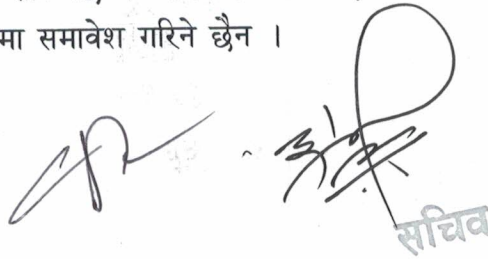 मा समावेश गरिने छैन ।
सचिव